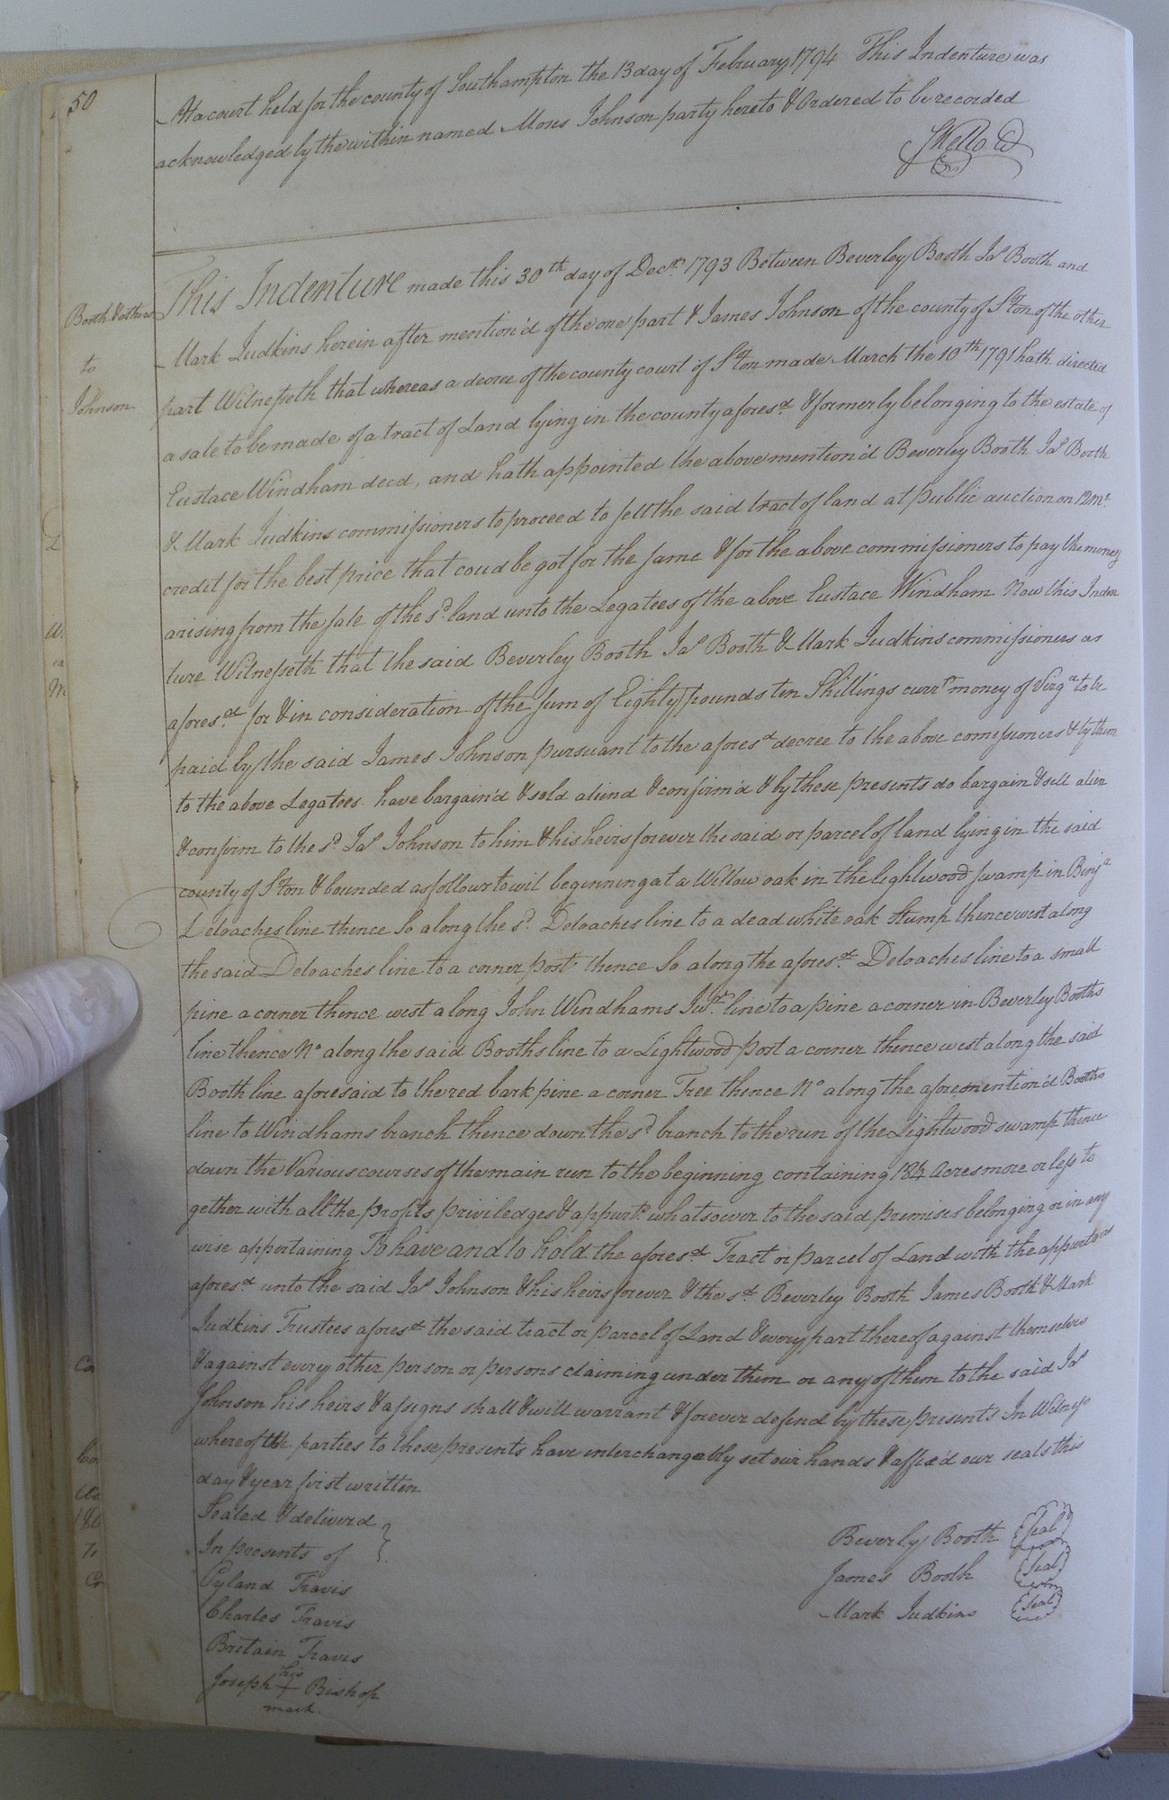 50
At a court held for the county of Southampton the 13 day of February 1794 This Indenture was
acknowledged by the within named Moses Johnson party hereto & Ordered to be recorded
Booth & others
to
Johnson
This Indenture made this 30th day of Decr. 1793 Between Beverley Booth Jas Booth and
Mark Judkins herein after mention'd of the one part & James Johnson of the county of S'ton of the other
part Witnesseth that whereas a decree of the county court of S'ton made March the 10th 1791 hath directed
a sale to be made of a tract of Land lying in the county aforesd & formerly belonging to the estate of
Eustace Windham decd, and hath appointed the above mention'd Beverley Booth Jas Booth
& Mark Judkins commissioners to proceed to sell the said tract of land at public auction on 12 mo
credit for the best price that coud be got for the same & for the above commissioners to pay the money
arising from the sale of the sd land unto the Legatees of the above Eustace Windham Now this Inden
ture Witnesseth that the said Beverley Booth Jas Booth & Mark Judkins commissioners as
aforesd for & in consideration of the sum of Eighty pounds ten Shillings currt money of Virga to be
paid by the said James Johnson pursuant to the aforesd decree to the above comissioners & by them
to the above Legatees have bargain'd & sold aliend & confirm'd & by these presents do bargain & sell alien
& confirm to the sd Jas Johnson to him & his heirs forever the said or parcel of land lying in the said
county of S'ton & bounded as follows to wit beginning at a Willow oak in the Lightwood swamp in Benja
Deloaches line thence So along the sd Deloaches line to a dead white oak stump thence west along
the said Deloaches line to a corner post thence So along the aforesd Deloaches line to a small
pine a corner thence west along John Windhams Junr. line to a pine a corner in Beverley Booths
line thence No along the said Booths line to a Lightwood post a corner thence west along the said
Booth line aforesaid to the red bark pine a corner Tree thence No along the aforemention'd Booths
line to Windhams branch thence down the sd branch to the run of the Lightwood swamp thence
down the Various courses of the main run to the beginning containing 184 Acres more or less to
gether with all the profits priviledges & appurts whatsoever to the said premises belonging or in any
wise appertaining To have and to hold the aforesd Tract or parcel of Land with the appurts
aforesd unto the said Jas Johnson & his heirs forever & the sd Beverley Booth James Booth & Mark
Judkins Trustees aforesd the said tract or parcel of Land & every part thereof against themselves
& against every other person or persons claiming under them or any of them to the said Jas
Johnson his heirs & assigns shall & will warrant & forever defend by these presents In Witness
whereof the parties to these presents have interchangeably set our hands & affixd our seals this
day & year first written
Sealed & deliverd
In presents of
Charles Travis
Britain Travis
Joseph his + Bishop
mark.
Beverley Booth Seal
James Booth Seal
Mark Judkins Seal